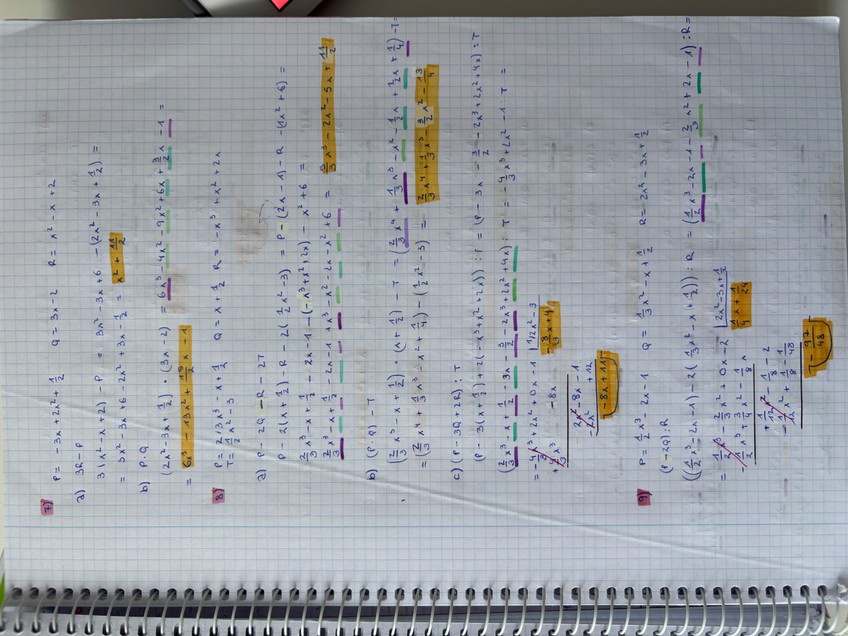 7) P = -3x + 2x² + 1/2   Q = 3x - 2   R = x² - x + 2
a) 3R - P
3(x² - x + 2) - P = 3x² - 3x + 6 - (2x² - 3x + 1/2) =
= 3x² - 3x + 6 - 2x² + 3x - 1/2 = x² + 11/2
b) P·Q
(2x² - 3x + 1/2) · (3x - 2) = 6x³ - 4x² - 9x² + 6x + 3/2 x - 1 =
= 6x³ - 13x² + 15/2 x - 1
8) P = 2/3x³ - x + 1/2   Q = x + 1/2   R = -x³ + x² + 2x
T = 1/2 x² - 3
a) P - 2Q - R - 2T
P - 2(x + 1/2) - R - 2(1/2 x² - 3) = P - (2x - 1) - R - (1x² + 6) =
2/3 x³ - x + 1/2 - 2x - 1 - (-x³ + x² + 2x) - x² + 6 =
2/3 x³ - x + 1/2 - 2x - 1 + x³ - x² - 2x - x² + 6 = 5/3 x³ - 2x² - 5x + 11/2
b) (P·Q) - T
(2/3 x³ - x + 1/2) · (x + 1/2) - T = (2/3 x⁴ + 1/3 x³ - x² - 1/2 x + 1/2 x + 1/4) - T =
= (2/3 x⁴ + 1/3 x³ - x² + 1/4) - (1/2 x² - 3) = 2/3 x⁴ + 1/3 x³ - 3/2 x² - 13/4
c) (P - 3Q + 2R) : T
(P - 3(x + 1/2) + 2(-x³ + x² + 2x)) : T = (P - 3x - 3/2 - 2x³ + 2x² + 4x) : T
(2/3 x³ - x + 1/2 - 3x - 3/2 - 2x³ + 2x² + 4x) : T = -4/3 x³ + 2x² - 1 : T =
= -4/3 x³ + 2x² + 0x - 1 | 1/2x² - 3
+ 4/3 x³ - 8x
- 8/3 x + 4
2x² - 8x - 1
- 2x² + 12
- 8x + 11
9) P = 1/2 x³ - 2x - 1   Q = 1/3 x² - x + 1/2   R = 2x² - 3x + 1/2
(P - 2Q) : R
((1/2 x³ - 2x - 1) - 2(1/3 x² - x + 1/2)) : R = (1/2 x³ - 2x - 1 - 2/3 x² + 2x - 1) : R =
= 1/2 x³ - 2/3 x² + 0x - 2 | 2x² - 3x + 1/2
- 1/2 x³ + 3/4 x² - 1/8 x
1/4 x + 1/24
+ 1/12 x² - 1/8 - 2
- 1/12 x² + 1/8 - 1/48
- 97/48